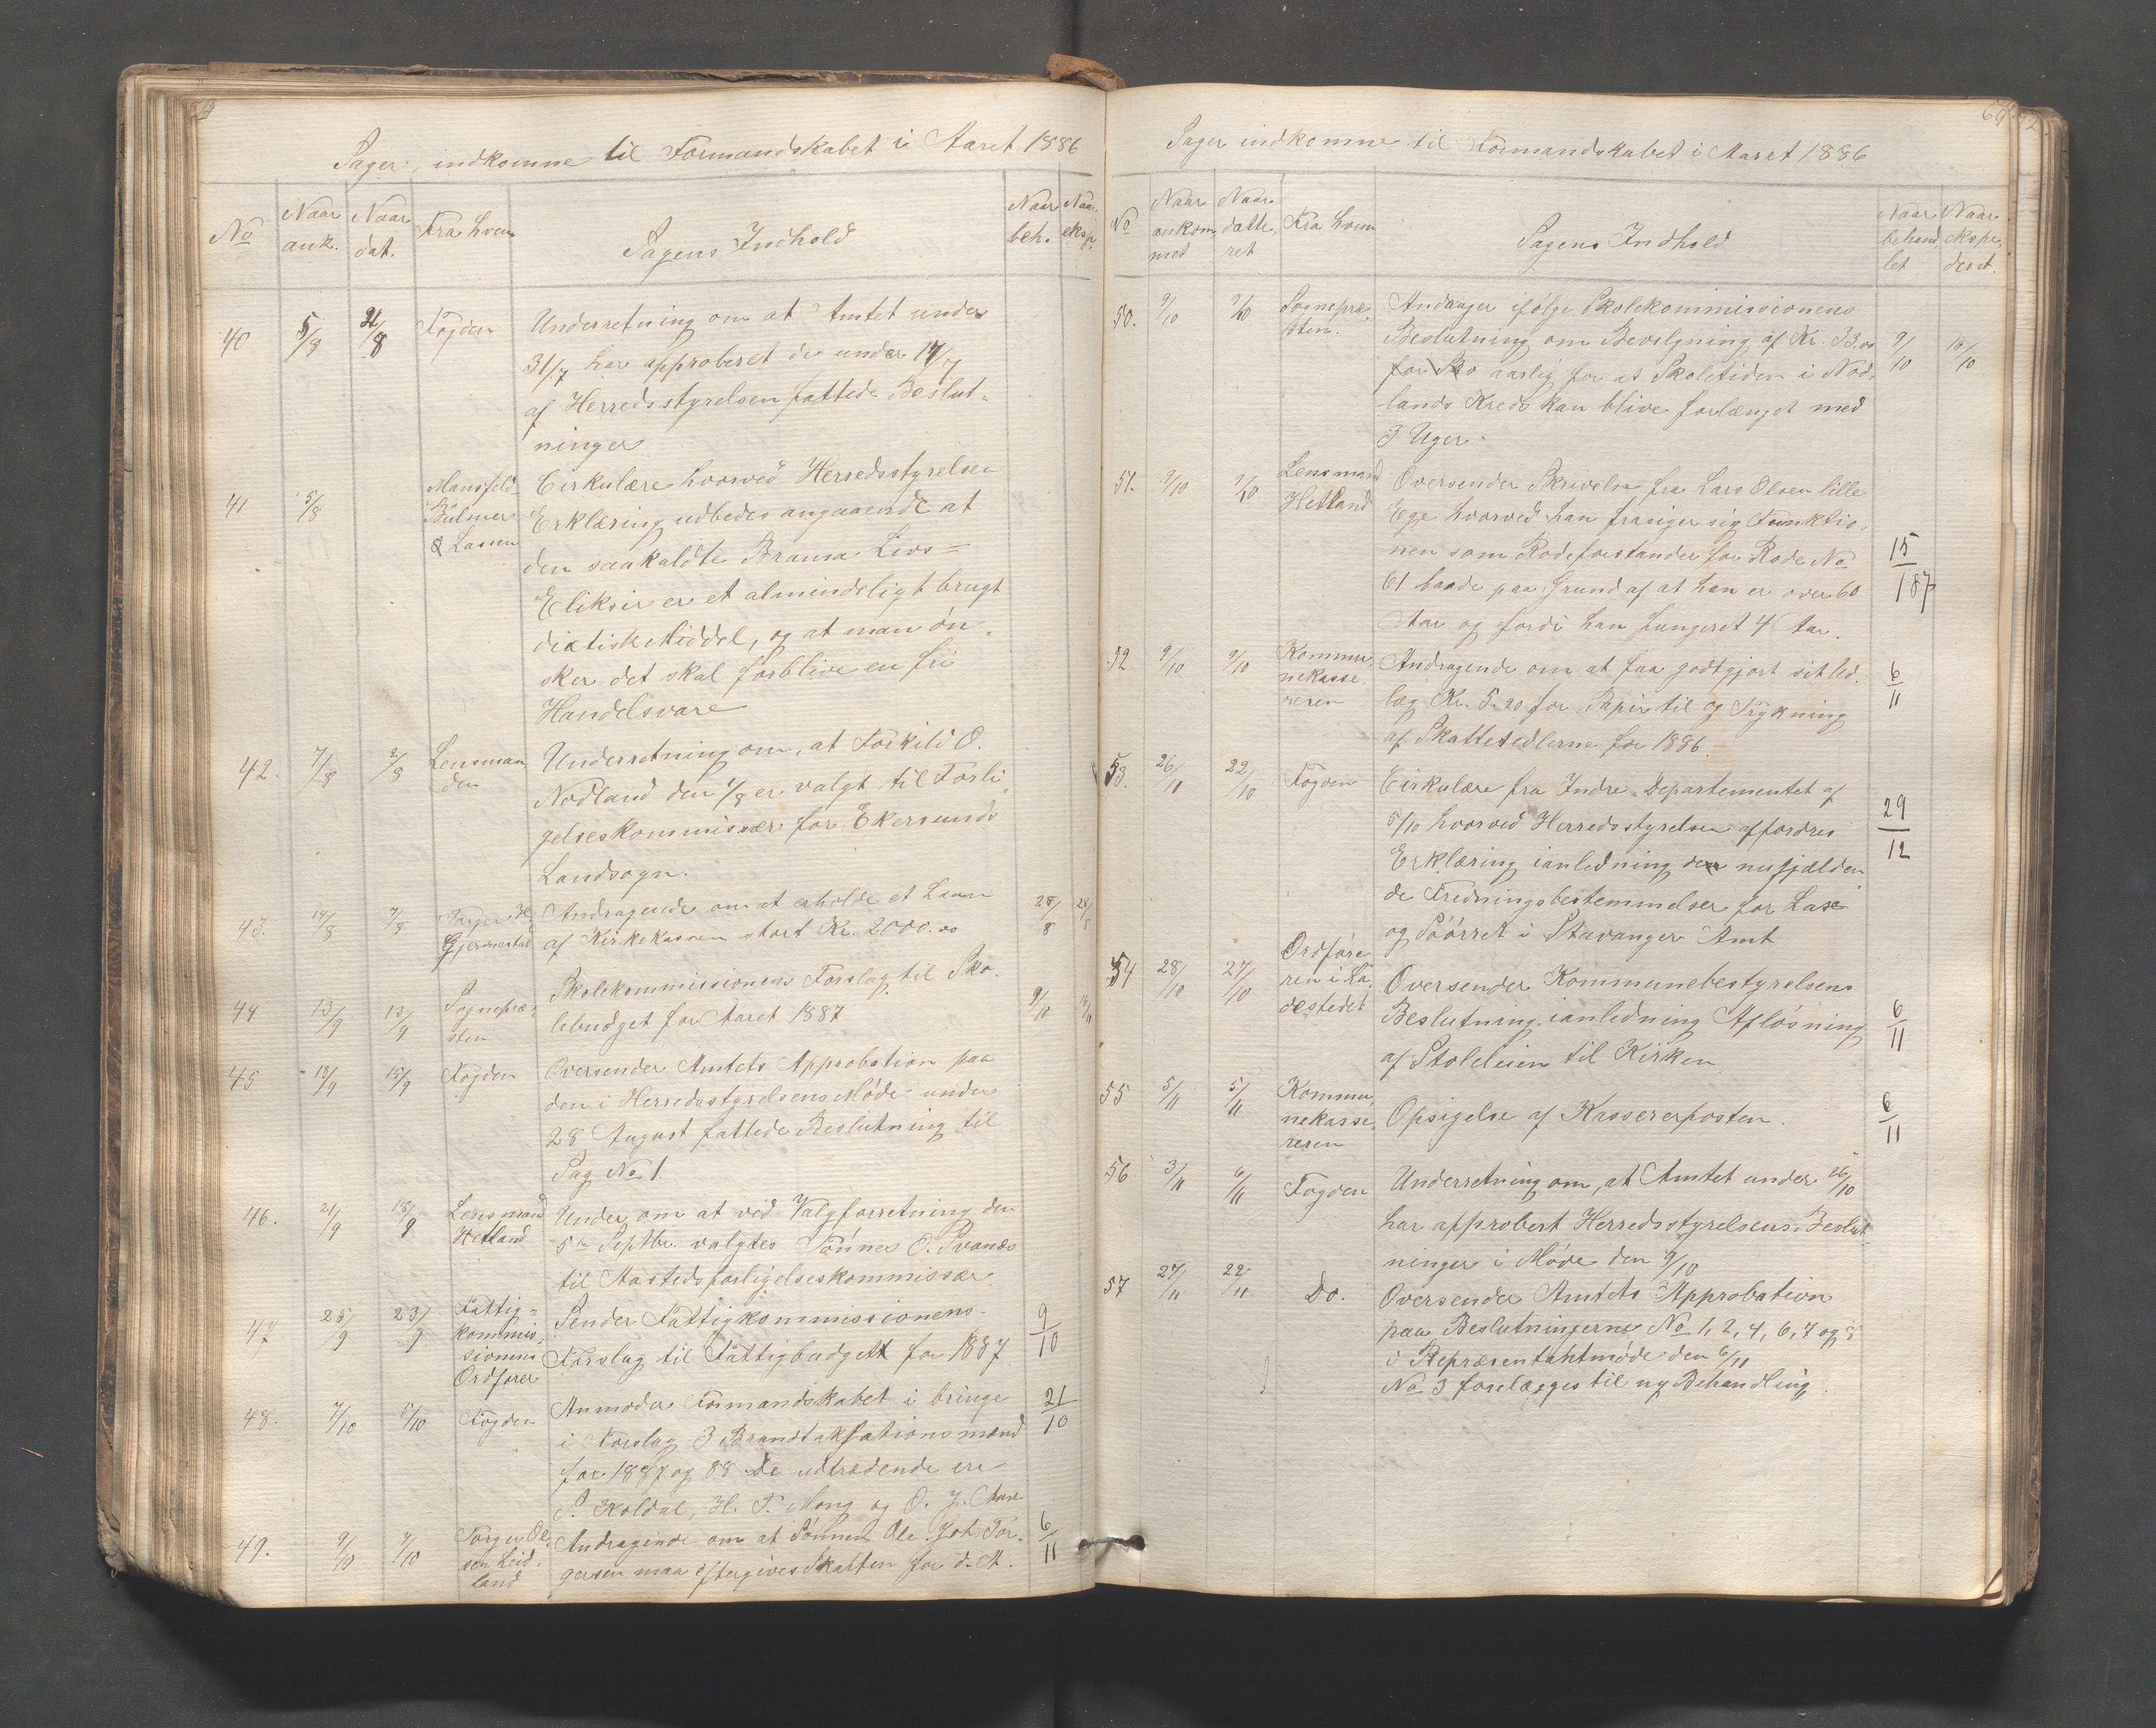 Sager, indkomne til Formandskabet i Aaret 1886
No
Naar ank.
Naar dat.
Fra hvem
Sagens Indhold
Naar beh.
Naar eksp.
40 5/8 Fogden Underretning om at Amtet under
31/7 har approberet de under 17/7
af Herredsstyrelsen fattede Beslut-
ninger
41 5/8 Mansfeld Bülmer & Lassen Cirkulære hvorved Herredsstyrelsen
Erklæring udbedes angaaende at
den saakaldte Brama Livs=
Eliksir er et almindeligt brugt
diætisk Middel, og at man øn-
sker det skal forblive en fri
Handelsvare
42. 7/8 2/8 Lensmanden Underretning om, at Torkild O.
Nodland den 1/8 er valgt til Forli-
gelseskommissær for Ekersunds
Landsogn.
43. 14/8 7/8 Gjermestad Andragende om at erholde et Laan 28/8 28/8
af Kirkekassen stort Kr. 2000.00
44 13/9 13/9 Sognepræsten Skolekommissionens Forslag til Sko- 9/10 16/11
lebudget for Aaret 1887
45 18/9 15/9 Fogden Oversender Amtets Approbation paa
den i Herredsstyrelsens Møde under
28 August fattede Beslutning til
Sag No 1.
46. 21/9 18/9 Lensmand Hetland Under. om at ved Valgforretning den
5te Septbr. valgtes Tönnes O. Svanes
til Aastedsforligelseskommissær.
47 25/9 23/9 Fattig=kommissionens Ordfører Sender Fattigkommissionens 9/10
Forslag til Fattigbudgett for 1887
48. 7/10 5/10 Fogden Anmoder Formandskabet i bringe 21/10
i Forslag 3 Brandtaksationsmænd
for 1887 og 88 De udtrædende ere
S. Koldal, H. T. Mong og O. J. Aase
49. 9/10 7/10 Torger Olsen Leidland Andragende om at Sønnen Ole Joh. Tor- 6/11
gersen maa eftergives Skatten for d. A.
Sager indkomne til Formandskabet i Aaret 1886
No
Naar ankommet
Naar datteret
Fra hvem
Sagens Indhold
Naar behandlet
Naar ekspederet.
50. 9/10 9/10 Sognepræsten. Andrager ifølge Skolekommissionens
Beslutning om Bevilgning af Kr. 33.00 9/10 16/10
for Sko aarlig for at Skoletiden i Nod-
lands Kreds kan blive forlænget med
3 Uger.
51. 9/10 9/10 Lensmand Hetland Oversender Skrivelse fra Lars Olsen lille
Ege hvorved han frasiger sig Funktio-
nen som Rodeforstander for Rode No 15/187
61 baade paa Grund af at han er over 60
Aar og fordi han fungeret 4 Aar.
52 9/10 9/10 Kommunekassereren Andragende om at faa godtgjort sit Ud- 6/11
læg Kr. 5.20 for Papir til og Trykning
af Skattesedlerne for 1886.
53. 26/11 22/10 Fogden Cirkulære fra Indre-Departementet af
5/10 hvorved Herredsstyrelsen affordres 29/12
Erklæring ianledning den nu gjælden
de Fredningsbestemmelser for Lax
og Söörret i Stavanger Amt
54 28/10 27/10 Ordføreren i Ladestedet Oversender Kommunebestyrelsens
Beslutning ianledning Afløsning 6/11
af Stoleleien til Kirken
55 5/11 5/11 Kommunekassereren Opsigelse af Kassererposten. 6/11
56 3/11 6/11 Fogden Underretning om, at Amtet under 26/10
har approbert Herredsstyrelsens Beslut-
ninger i Møde den 9/10
57 27/11 22/11 Do. Oversender Amtets Approbation
paa Beslutningerne No 1, 2, 4, 6, 7 og 8
i Repræsentantmøde den 6/11
No 3 forelægges til ny Behandling.